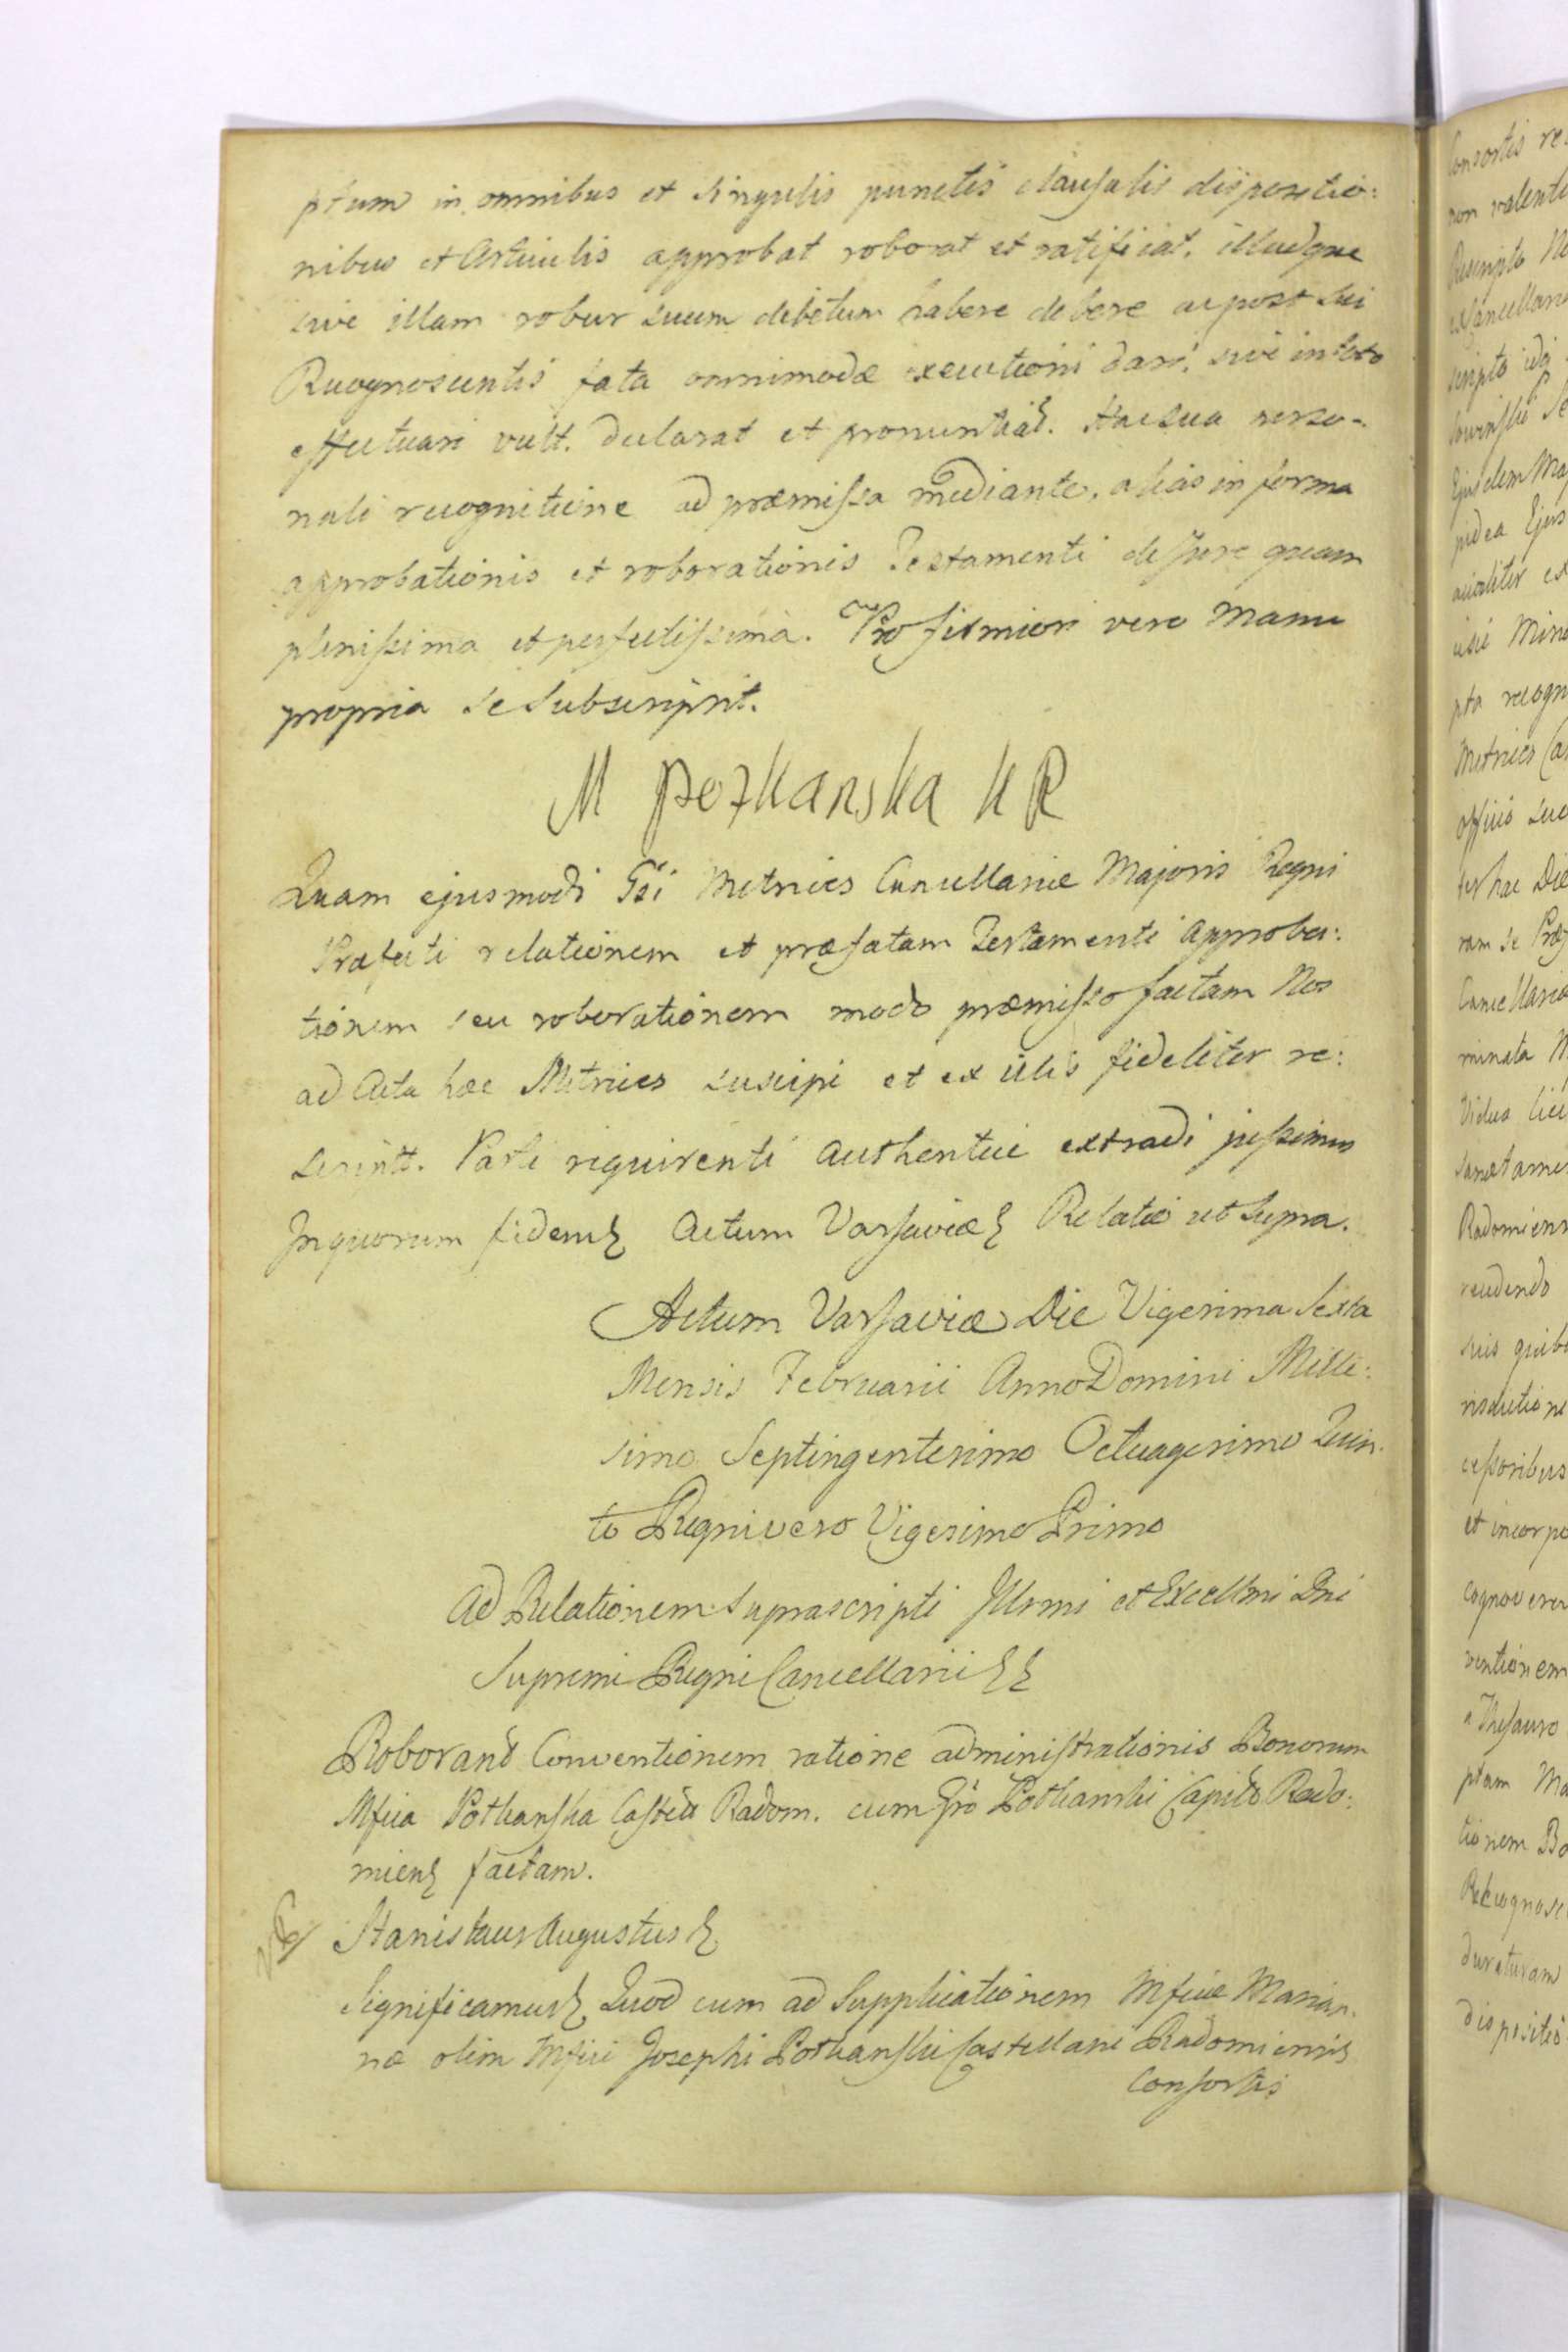 ptum in omnibus et singulis punctis clausulis dispositio:
nibus et Articulis approbat roborat et ratificat. illudque
sive illam robur suum debitum habere debere ac post sui
Recognoscentis fata omnimodæ executioni dari, sive in toto
effectuari vult. declarat et pronuntiat. Hac sua perso-
nali recognitione ad præmissa mediante, alias in forma
approbationis et roborationis Testamenti de Jure quam
plenissima et perfectissima. Pro firmiori vero Manu
propria se subscripsit.
M pozkanska K R
Quam ejusmodi Gsi Metrices Cancellariæ Majoris Regni
Præfecti relationem et præfatam Testamenti approba:
tionem seu roborationem modo præmisso factam Nos
ad Acta hæc Metrices suscipi et ex illis fideliter re:
script. Parti requirenti authentice extradi jussimus
In quorum fidem Actum Varsaviæ Relatio ut supra.
Actum Varsaviæ Die Vigesima Sexta
Mensis Februarii Anno Domini Mille:
simo Septingentesimo Octuagesimo Quin-
to Regni vero Vigesimo Primo
Ad Relationem suprascripti Illrmi et Excellmi Dni
Supremi Regni Cancellarii
Roborant Conventionem ratione administrationis Bonorum
Mfica Potkanska Castell Radom. cum Gso Potkanski Capit Rado:
mien factam.
Stanislaus Augustus
Significamus Quod cum ad Supplicationem Mficæ Marian-
næ olim Mfici Josephi Potkanski Castellani Radomiensis
Consortis

Consortis re
non valenti
Rescripto
Cancellaria
scripto
Ejusdem Ma
pidea Ejus
pta recogn
Metrices Ca
officio suo
ter hac Die
ram se Præ
Cancellaria
minata
Vidua
Radomiens
suis quib
cessoribus
et incorpo
cognover
ventionem
a Thesauro
ptam Ma
tionem Bo
Recognosc
duraturam
dispositio